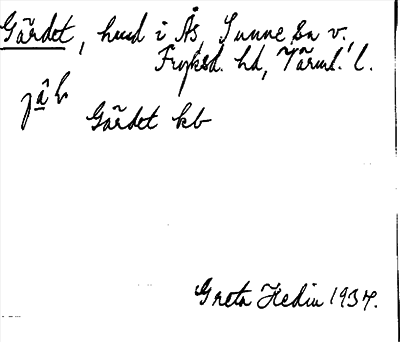 Gärdet, hmd i Ås, Sunne sn v.,
Fryksd. hd, Värml. l.
Gärdet kb
Greta Hedin 1934.